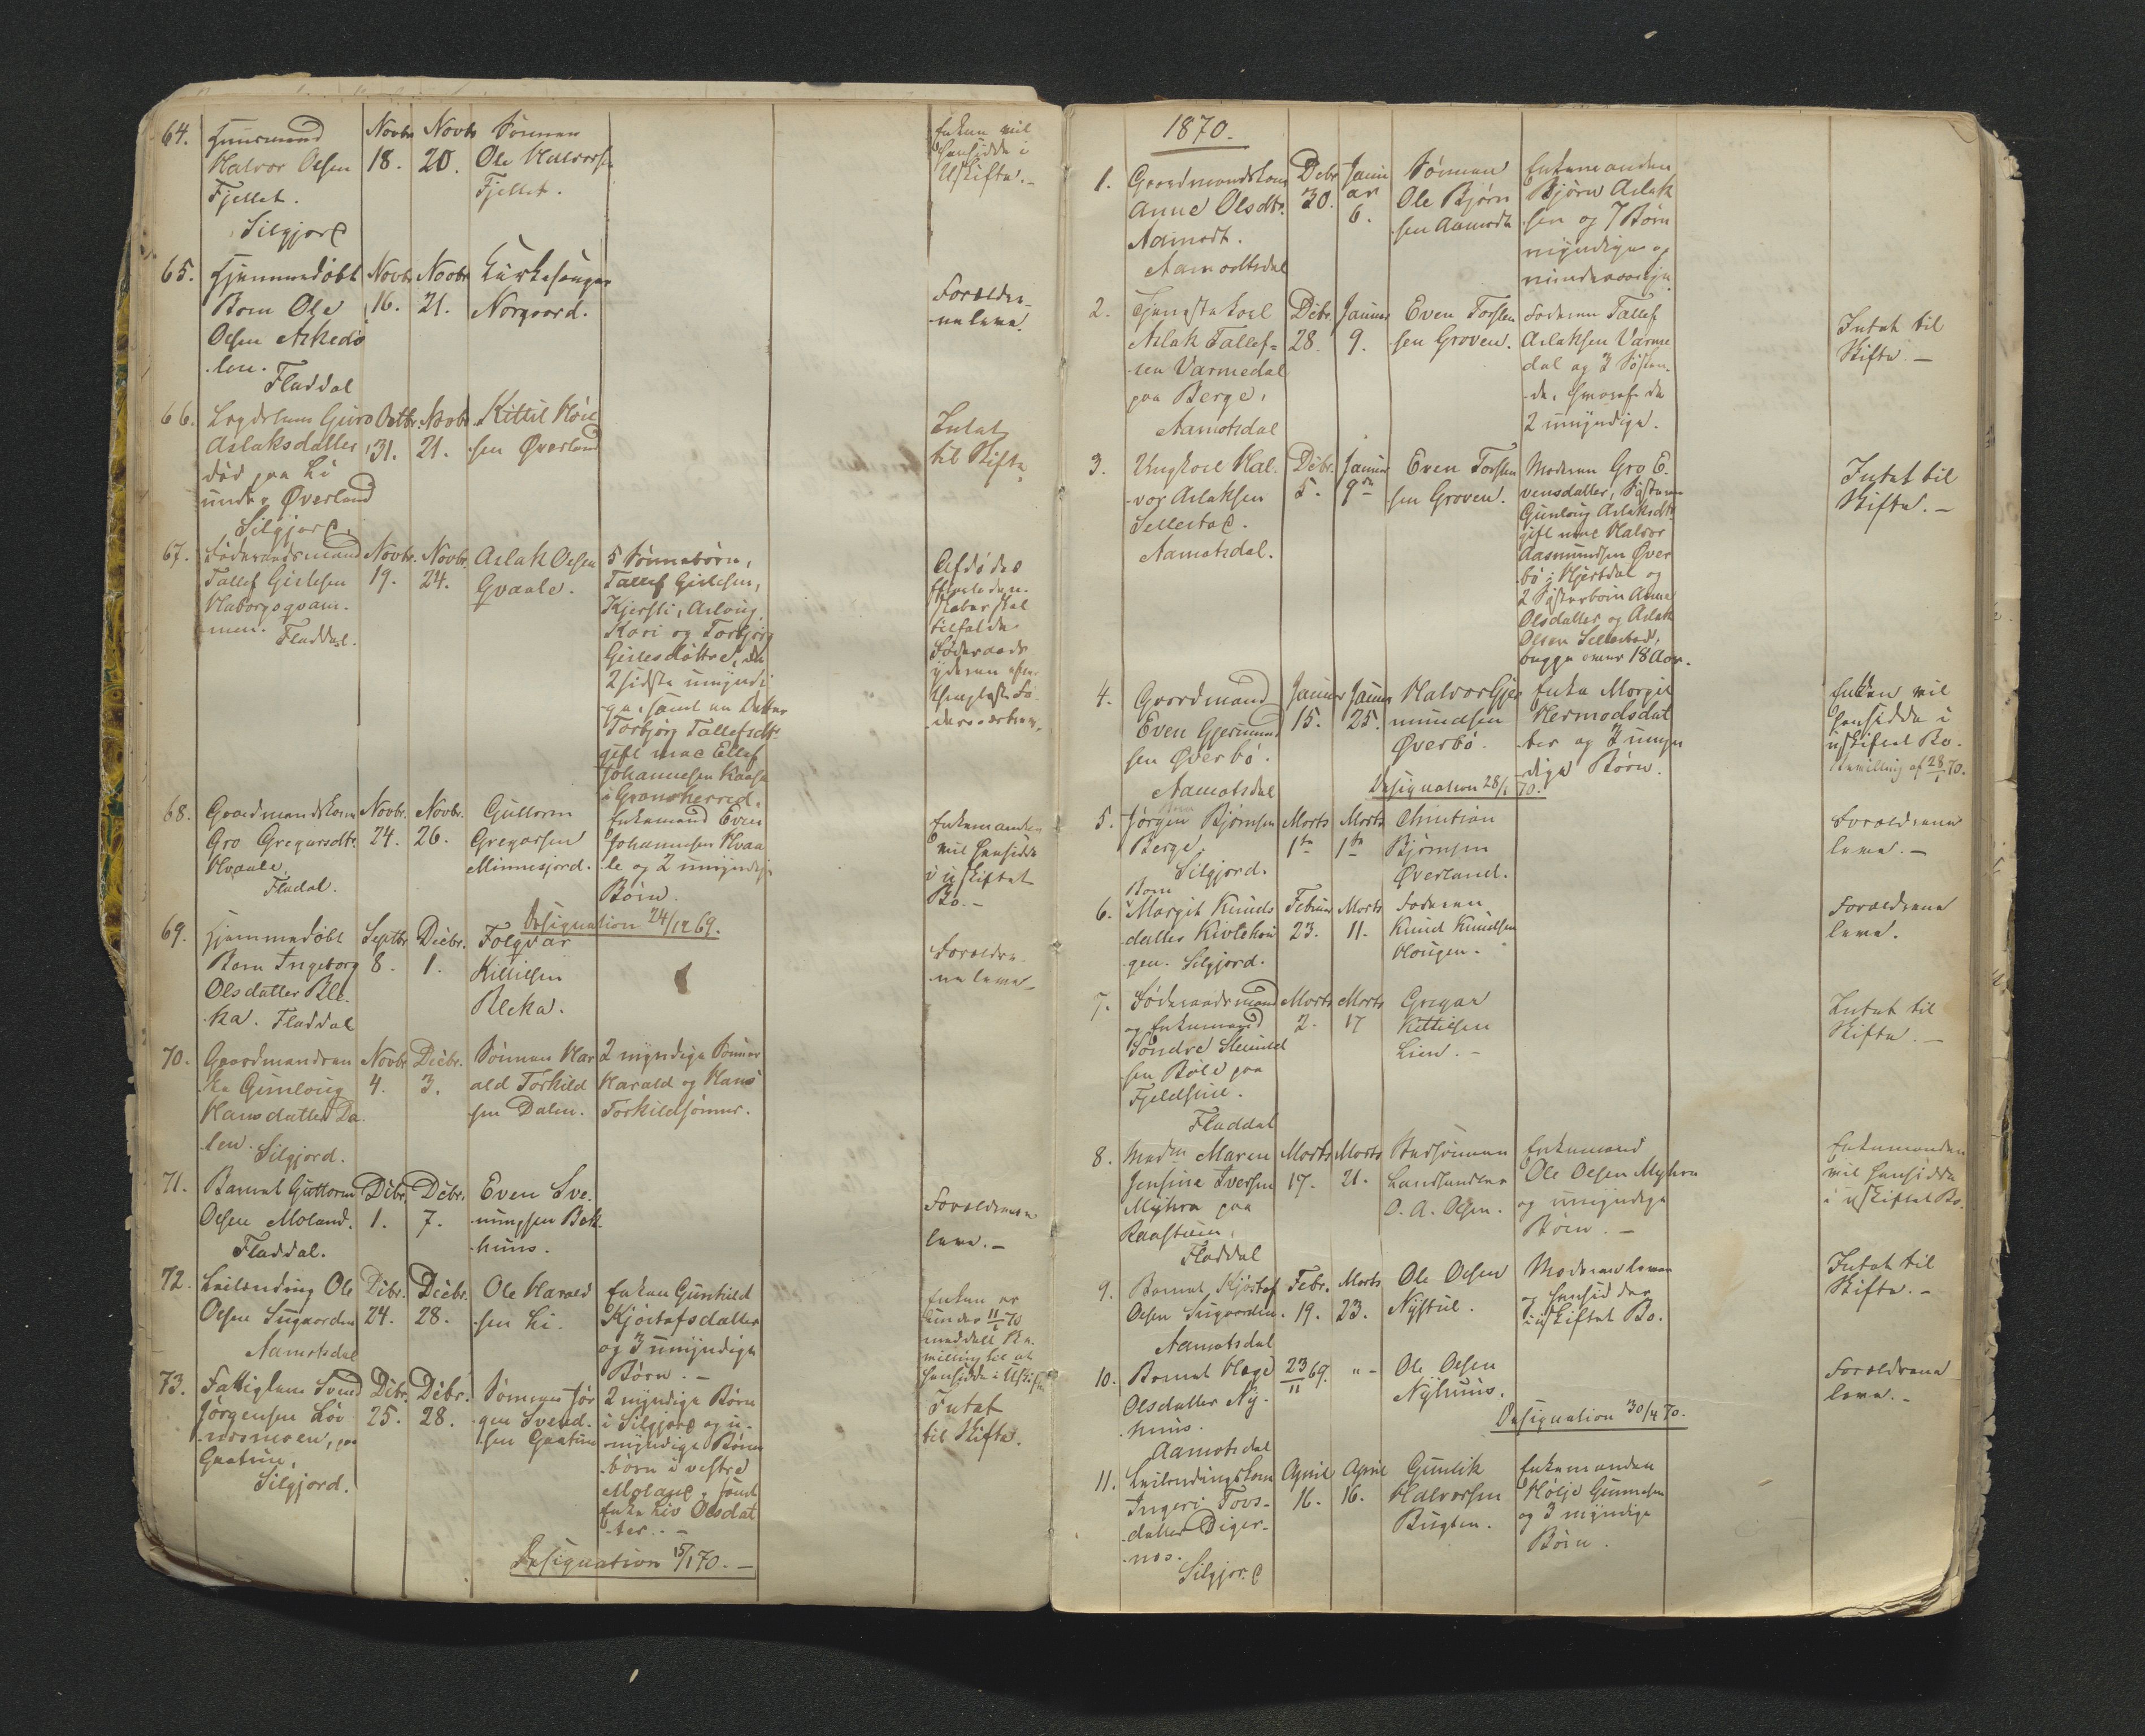 64.
Huusmand
Halvor Olsen
Fjellet.
Silgjord
Novbr
18.
Novbr
20.
Sønnen
Ole Halvorsen
Fjellet.
Enken vil
hensidde i
Uskifte.-
65.
Hjemmedøbt
Barn Ole
Olsen Askedø
len.
Fladdal
Novbr
16.
Novbr
21.
Kirkesanger
Norgaard.
Forældre-
ne leve.
66.
Lægdslem Guro
Aslaksdatter
død paa Li
under Øverland
Silgjord.
Octbr.
31.
Novbr.
21.
Kittil Høie
sen Øverland
Intet
til Skifte
67.
Føderaadsmand
Tallef Gislesen
Haborgsqvam-
men.
Fladdal.
Novbr.
19.
Novbr.
24.
Aslak Olsen
Qvaale.
5 Sønnebørn,
Tallef Gislesen,
Kjersti, Aslaug
Kari og Torbjørg
Gislesdøttre, de
2 sidste umyndi
ge, samt en Datter
Torbjørg Tallefsdtr
gift med Ellef
Johannesen Kaasa
i Gransherred.
Afdødes
Efterladen-
skaber skal
tilfalde
Føderaads
yderen
68.
Gaardmandskone
Gro Gregarsdtr.
Hvaale.
Fladal.
Novbr.
24.
Novbr.
26.
Guttorm
Gregarsen
Minnesjord.
Enkemand Even
Johannesen Kvaa
le og 2 umyndige
Børn.
Enkemanden
vil hensidde
i uskiftet
Bo.-
Designation 24/12 69.
69.
Hjemmedøbt
Barn Ingeborg
Olsdatter Ble-
ka. Fladdal
Septbr
8.
Decbr.
1.
Folqvar
Kittilsen
Bleka.
Forældre-
ne leve-
70.
Gaardmandsen
ke Gunloug
Hansdatter Da-
len. Silgjord.
Novbr
4.
Decbr.
3.
Sønnen Har
ald Torkild
sen Dalen.
2 myndige Sønner
Harald og Hans
Torkildsønner.
71.
Barnet Guttorm
Olsen Moland.
Fladdal.
Dcbr.
1.
Dcbr.
7.
Even Sve-
nungsen Bek-
huus.
Forældrene
leve.-
72.
Leilænding Ole
Olsen Sugaarden
Aamotsdal
Dcbr.
24.
Decbr.
28.
Ole Harald
sen Li.
Enken Gunhild
Kjøstofsdatter
og 3 umyndige
Børn.-
Enken er
under 11/1 70
meddelt Be-
villing til at
hensidde i Uskifte
73.
Fattiglem Svend
Jørgensen Løv
Gaatun,
Silgjord.
Dcbr.
25.
Dcbr.
28.
Sønnen Jør
gen Svend-
sen Gaatun
2 myndige Børn
i Silgjord og u-
myndige Børne
børn i vestre
Moland, samt
Enke Liv Olsdat
ter.-
Intet
til Skifte.
Designation 15/1 70.-
1870.
1.
Gaardmandskone
Anne Olsdtr.
Aamodt.
Aamodtsdal
Dcbr
30.
Janu
ar
6.
Sønnen
Ole Bjørn
sen Aamodt
Enkemanden
Bjørn Aslak
sen og 7 Børn
myndige og
mindreaarige
2.
Tjenestekarl
Aslak Tallef-
sen Varmedal
paa Berge,
Aamotsdal
Dcbr.
28.
Januar
9.
Even Torsten
sen Groven.
Faderen Tallef
Aslaksen Varme
dal og 3 Søsken-
de, hvoraf de
2 umyndige.
Intet til
Skifte.-
3.
Ungkarl Hal-
vor Aslaksen
Sellestad.
Aamotsdal.
Dcbr.
5.
Januar
9de
Even Torsten
sen Groven.
Moderen Gro E-
vensdatter, Søsteren
Gunloug Aslaksdtr.
gift med Halvor
Aasmundsen Øver
bø i Hjertdal og
2 Søsterbørn Anne
Olsdatter og Aslak
Olsen Sellestad,
begge over 18 Aar.
Intet til
Skifte.-
4.
Gaardmand
Even Gjermund
sen Øverbø.
Aamotsdal
Januar
15.
Januar
25.
Halvor Gjer
mundsen
Øverbø.
Enke Margit
Hermodsdat
ter og 7 umyn
dige Børn.
Enken vil
hensidde i
uskiftet Bo.
Bevilling af 28/1 70.
Designation 28/1 70.
5.
Barn
Jørgen Bjørnsen
Berge.
Silgjord.
Marts
1ste
Marts
1ste
Christian
Bjørnsen
Øverland.
Forældrene
leve.-
6.
Barn
Margit Knuds
datter Kivlehou
gen. Silgjord.
Februar
23.
Marts
11.
Faderen
Knud Knudsen
Hougen.
Forældrene
leve.
7.
Føderaadsmand
og Enkemand
Søndre Steinulf
sen Bøle paa
Fjeldstul.
Fladdal
Marts
2.
Marts
17
Gregar
Kittilsen
Lien.-
Intet til
Skifte.-
8.
Madm Maren
Jensine Iversen
Myhra paa
Raastuen,
Fladdal
Marts
17.
Marts
21.
Stedsønnen
Landhandler
O. A. Olsen.
Enkemand
Ole Olsen Myhra
og umyndige
Børn.-
Enkemanden
vil hensidde
i uskiftet Bo.
9.
Barnet Kjøstof
Olsen Sugaarden.
Aamotsdal
Febr.
19.
Marts
23.
Ole Olsen
Nystul.
Moderen lever
og hensidder
i uskiftet Bo.
Intet til
Skifte.-
10.
Barnet Hæge
Olsdatter Ny-
huus.
Aamotsdal
23/11 69.
"-
Ole Olsen
Nyhuus.
Forældrene
leve.-
Designation 30/4 70.
11.
Leilændingskone
Ingeri Tovs-
datter Diger-
næs.
Silgjord
April
16.
April
16.
Gunlik
Halvorsen
Bugten.
Enkemanden
Høljе Gunnesen
og 3 myndige
Børn.